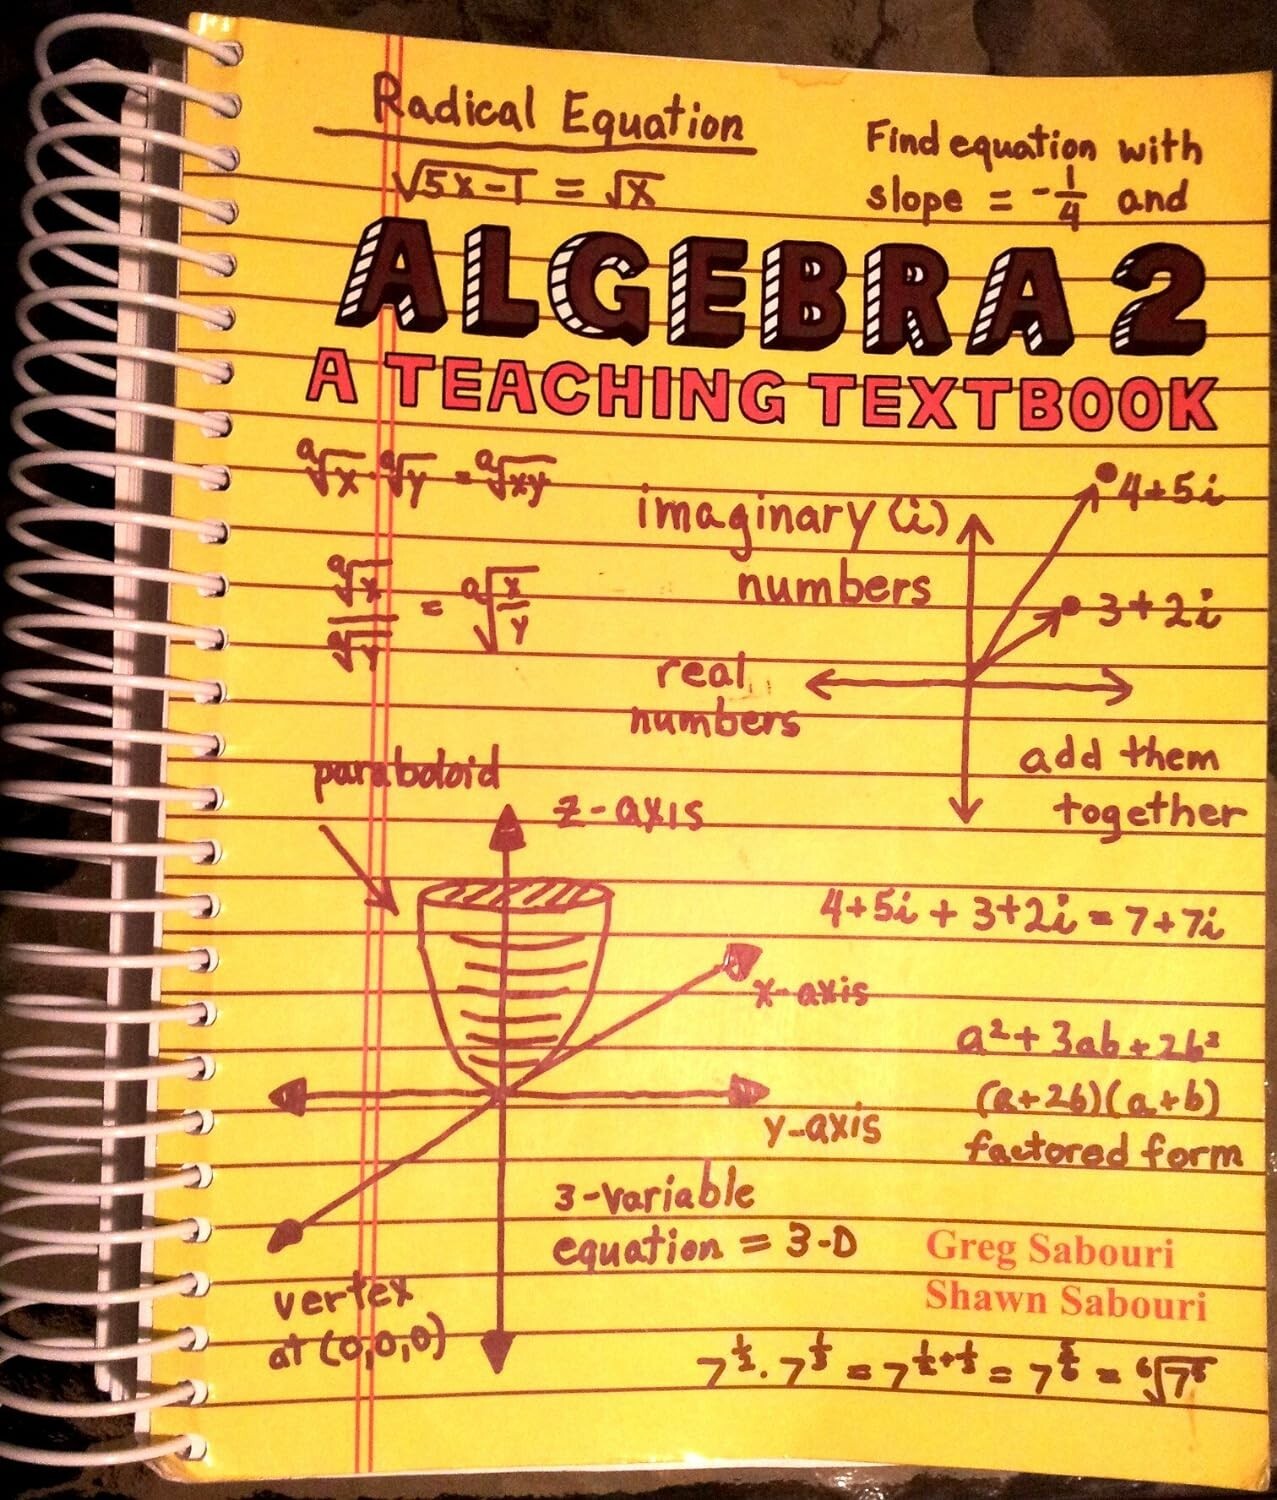 Radical Equation
√5x-1 = √x
Find equation with
slope = -1/4 and
ALGEBRA 2
A TEACHING TEXTBOOK
ᵃ√x · ᵃ√y = ᵃ√xy
ᵃ√x / ᵃ√y = ᵃ√x/y
imaginary (i)
numbers
4+5i
3+2i
real
numbers
add them
together
paraboloid
z-axis
4+5i + 3+2i = 7+7i
x-axis
a² + 3ab + 2b²
(a+2b)(a+b)
factored form
y-axis
3-variable
equation = 3-D
Greg Sabouri
Shawn Sabouri
vertex
at (0,0,0)
7^½ · 7^⅓ = 7^½+⅓ = 7^⅚ = ⁶√7⁵